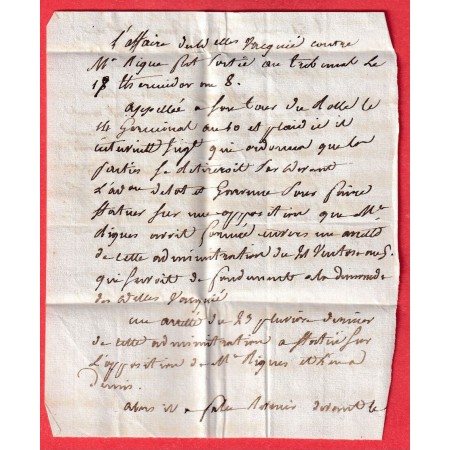 L'affaire du Welles Vacquié contre
Mr Rigue fut portée au tribunal le
18 thermidor an 8.
appellée a son tour du Rolle le
14 Germinal an 10 et plaidée il
intervint jugt qui ordonnea que les
parties se retireroit par devant
L'ad on du Lot et Garonne pour faire
statuer sur une opposition que Mr
Rigues avoit formée envers un arrété
de cette administration du 21 Ventose an 5.
qui servoit de fondement a la demande
des Welles Vacquié
un arrété du 23 pluviose dernier
de cette administration a statué sur
L'opposition de Mr Rigues et l'en a
demis.
alors il a fallu Revenir devant le